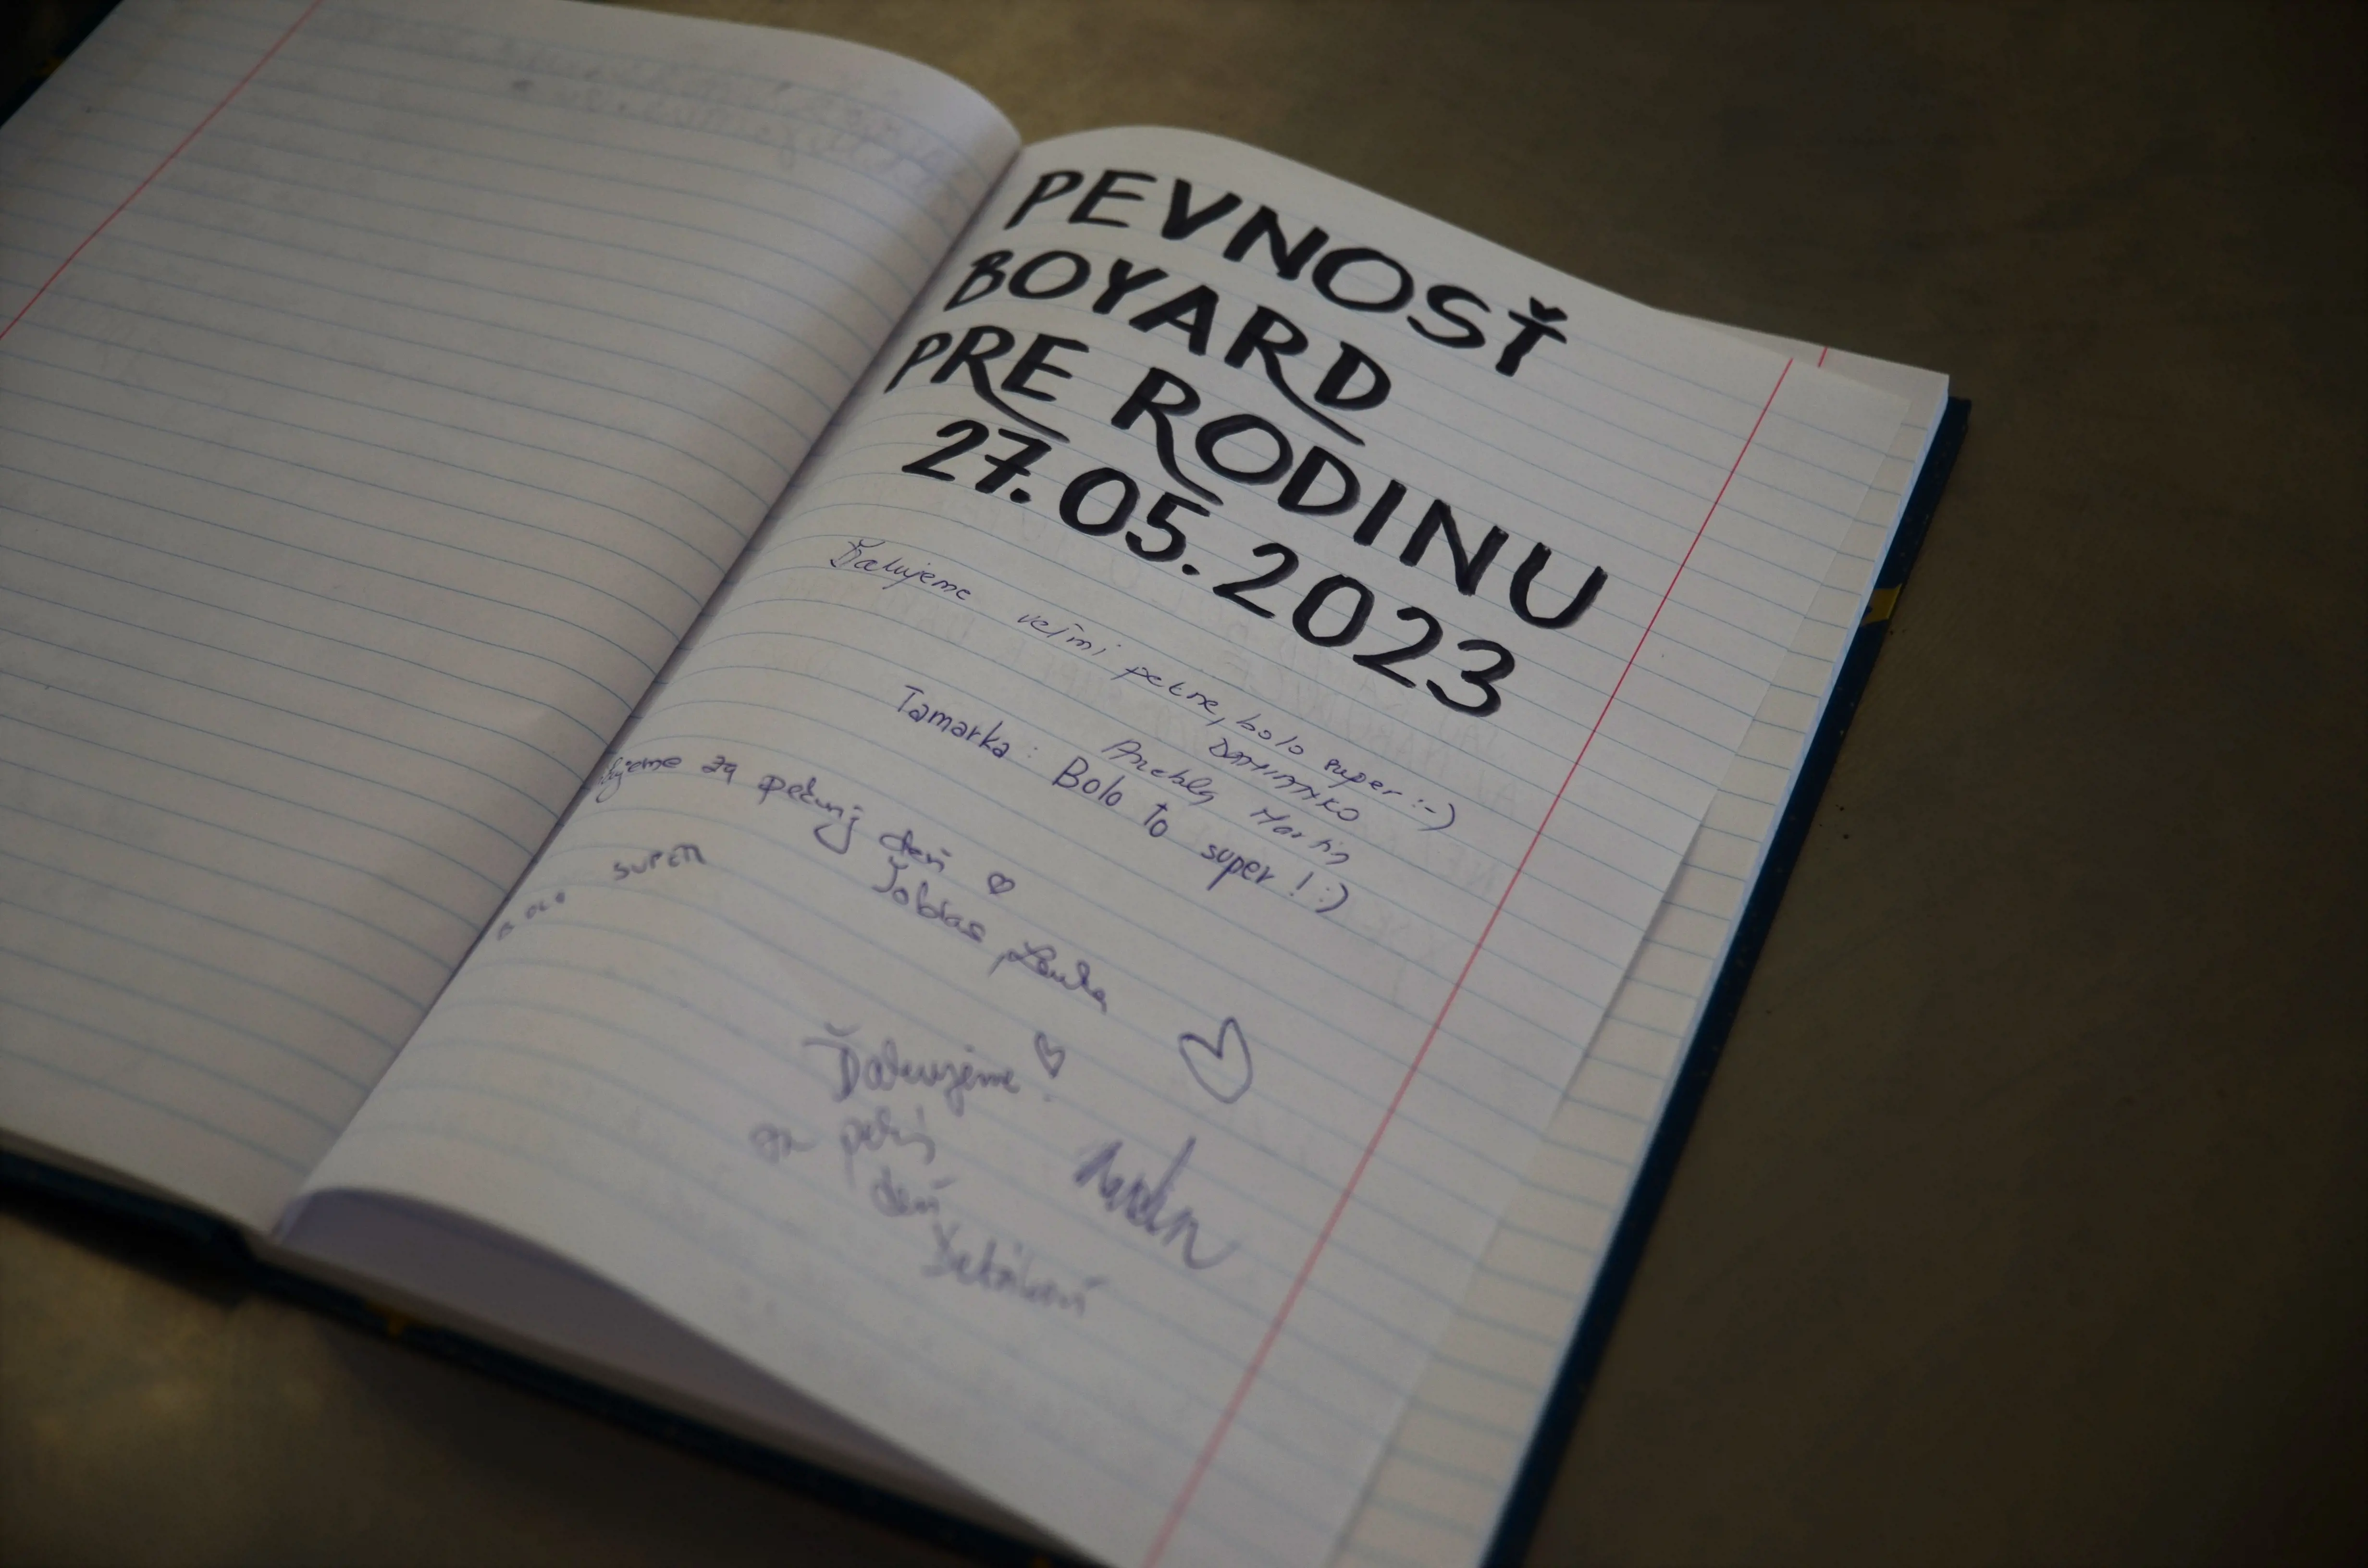 PEVNOSŤ
BOYARD
PRE RODINU
27.05.2023
Ďakujeme veľmi pekne, bolo super :-)
DOMINIKO
Martin
Tamarka : Bolo to super ! :)
za pekný deň ♡
Tobias, Lenka
BOLO SUPER
Ďakujeme ♡
za pekný
deň